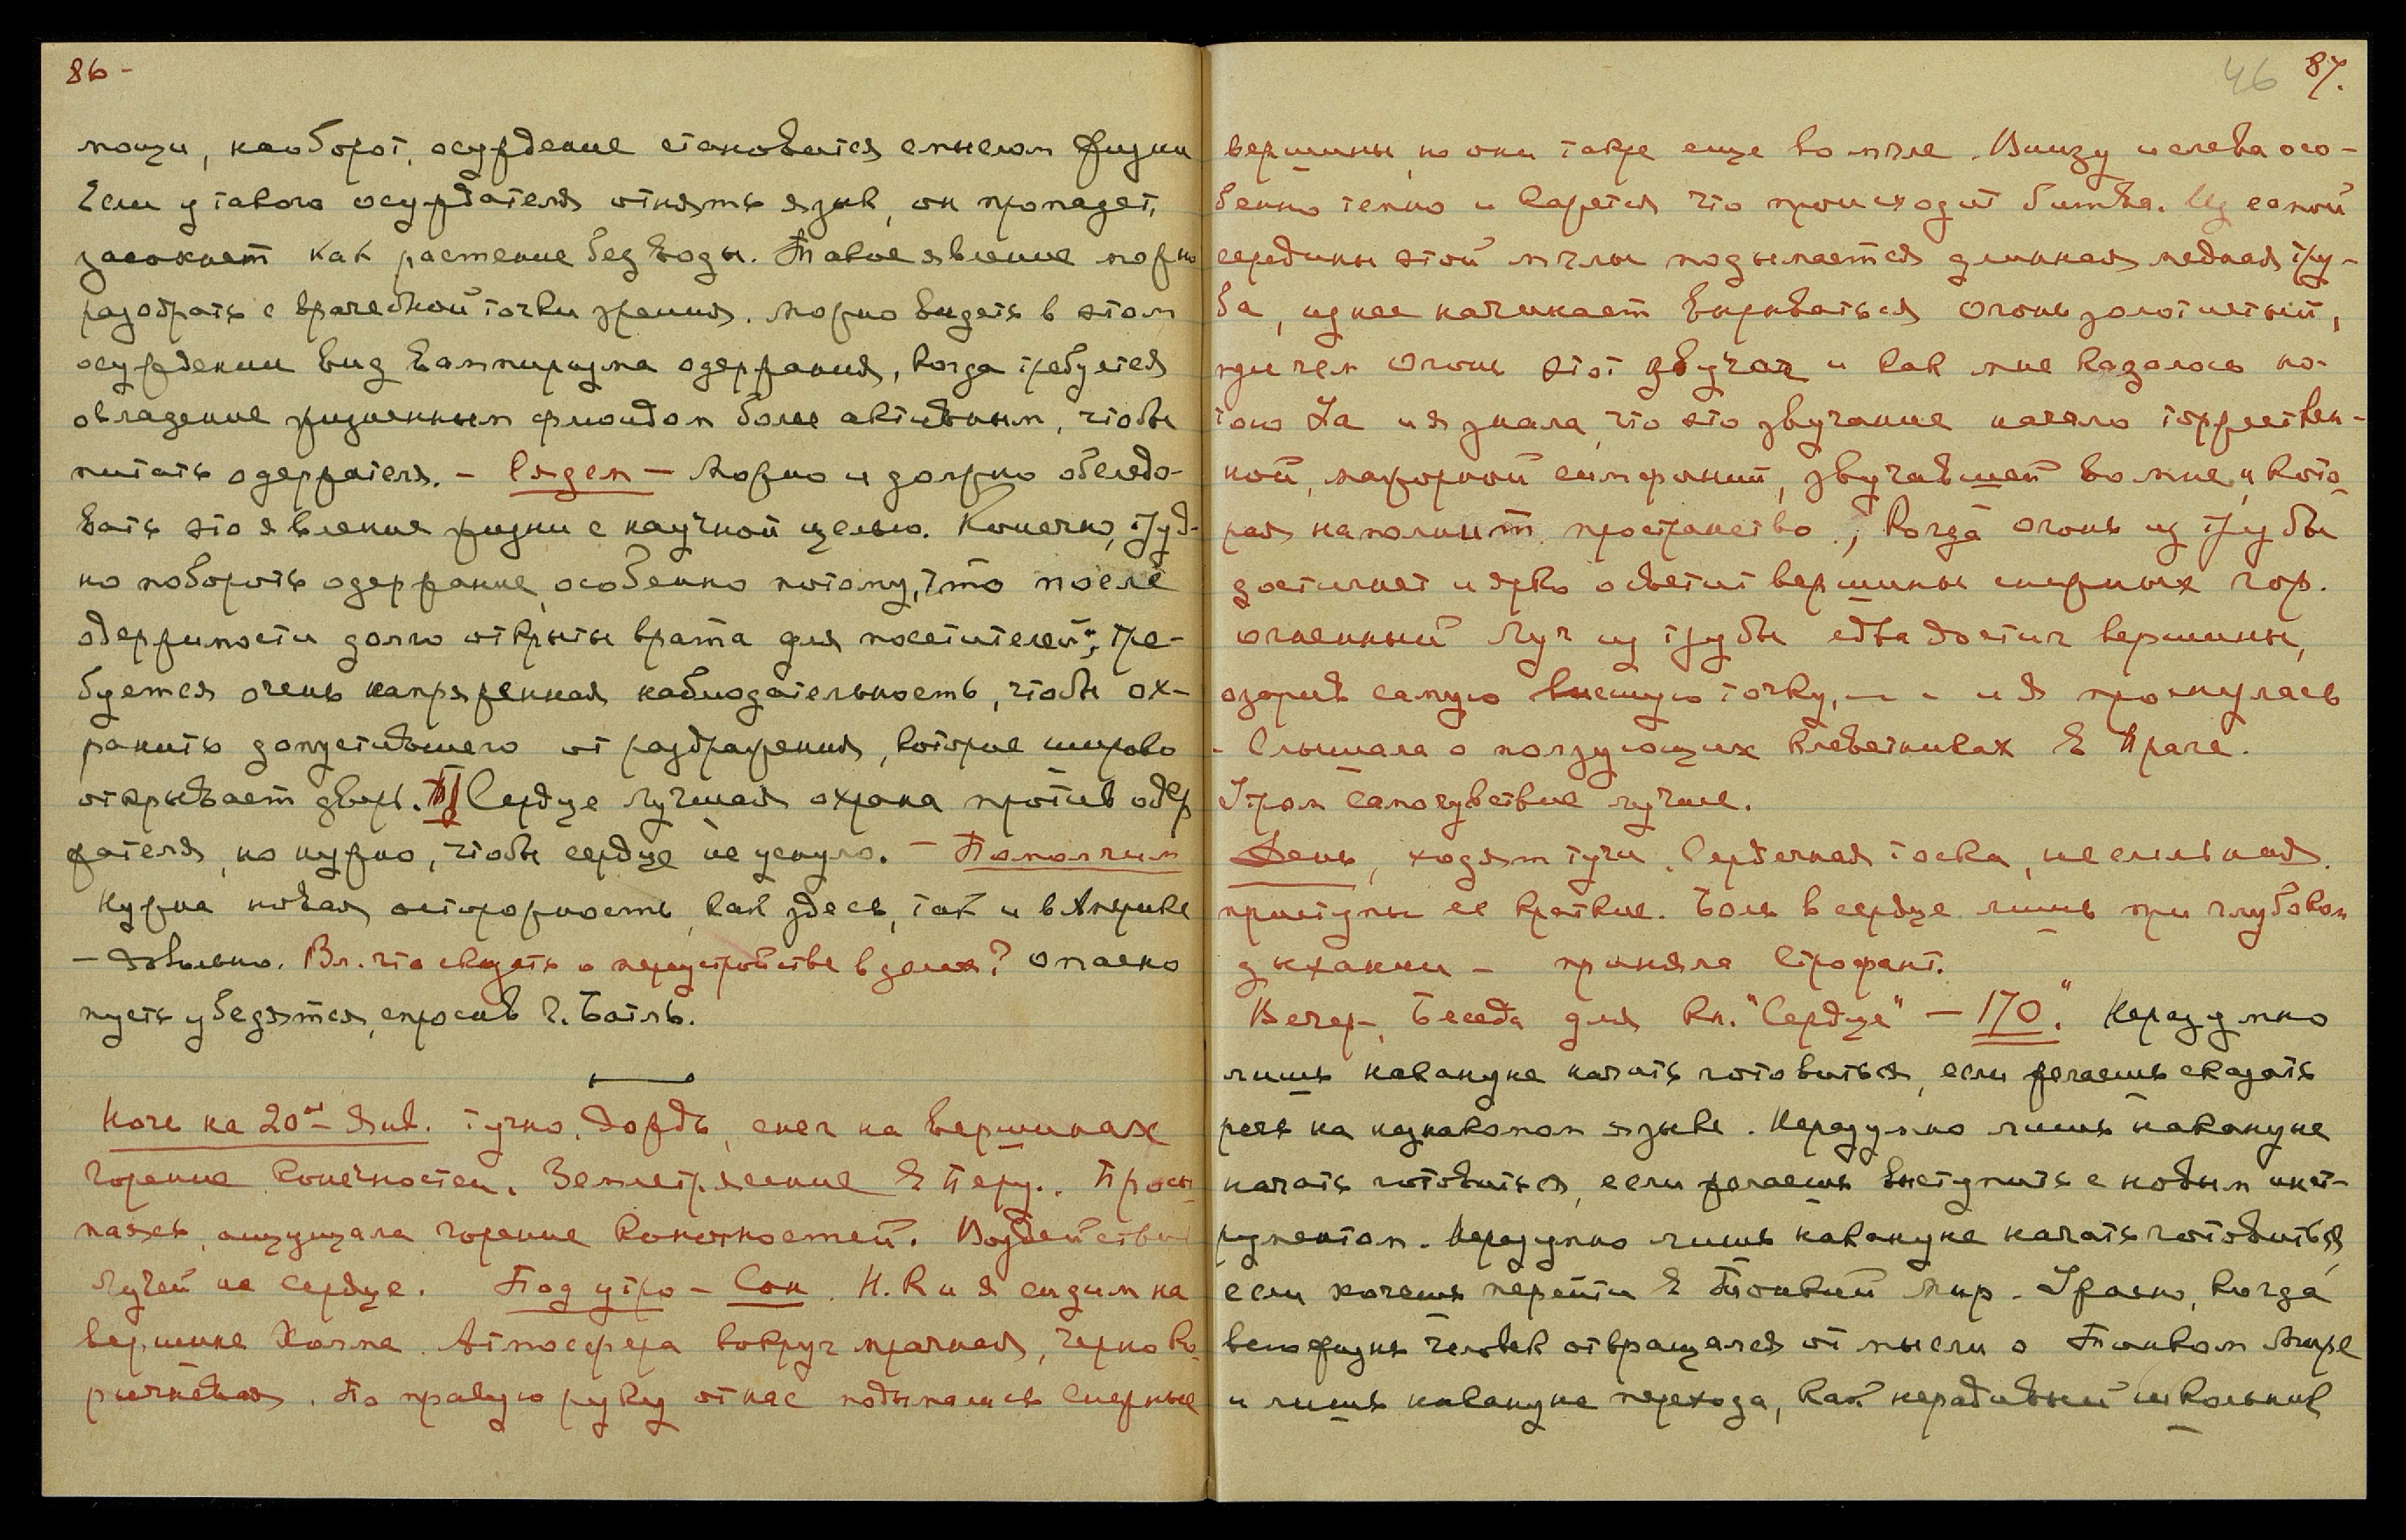 86-
мощи, наоборот, осуждение становится смыслом жизни
Если у такого осуждателя отнять язык, он пропадет,
засохнет как растение без воды. Такое явление можно
разобрать с врачебной точки зрения. Можно видеть в этом
осуждении вид вампиризма одержания, когда требуется
овладение жизненным флюидом более активным, чтобы
питать одержателя. - Сядем - Можно и должно обследо-
вать это явление жизни с научной целью. Конечно, труд-
но побороть одержание, особенно потому, что после
одержимости долго открыты врата для посетителей; тре-
буется очень напряженная наблюдательность, чтобы ох-
ранить допустившего от раздражения, которое широко
открывает дверь. Сердце лучшая охрана против одер
жателя, но нужно, чтобы сердце не уснуло. - Помолчим
Нужна новая осторожность, как здесь, так и в Америке
- Довольно. Вл. что сказать о переустройстве в делах? Опасно
пусть убедятся, спросив г. Батль.
Ночь на 20ое Янв. Тучно, Дождь, снег на вершинах
Горение конечностей. Землетрясение в Перу. Просы
паясь, ощущала горение конечностей. Воздействие
Лучей на сердце. Под утро - Сон. Н.К и я сидим на
вершине Холма. Атмосфера вокруг мрачная, черно ко-
ричневая. По правую руку от нас подымались снежные
46 87.
вершины, но они также еще во мгле. Внизу и слева осо-
бенно темно и кажется что происходит битва. Из самой
середины этой мглы подымается длинная медная тру-
ба, из нее начинает вырываться Огонь золотистый,
при чем Огонь этот звучал и как мне казалось но-
тою Fa и я знала, что это звучание начало торжествен-
ной, мажорной симфонии, звучавшей во мне, и кото-
рая наполнит пространство, когда Огонь из трубы
достигнет и ярко осветит вершины снежных гор.
Огненный Луч из трубы едва достиг вершины,
озарив самую высшую точку, - - и я проснулась
- Слышала о ползующих клеветниках в Праге.
Утром самочувствие лучше.
День, ходят тучи. Сердечная тоска, не сильная,
приступы ее краткие. Боль в сердце лишь при глубоком
дыхании - приняла Строфант.
Вечер, Беседа для кн. "Сердце" - 170. "Неразумно
лишь накануне начать готовиться, если желаешь сказать
речь на незнакомом языке. Неразумно лишь накануне
начать готовиться, если желаешь выступить с новым инст-
рументом. Неразумно лишь накануне начать готовиться,
если хочешь перейти в Тонкий Мир. Ужасно, когда
всю жизнь человек отвращался от мысли о Тонком Мире
и лишь накануне перехода, как нерадивый школьник